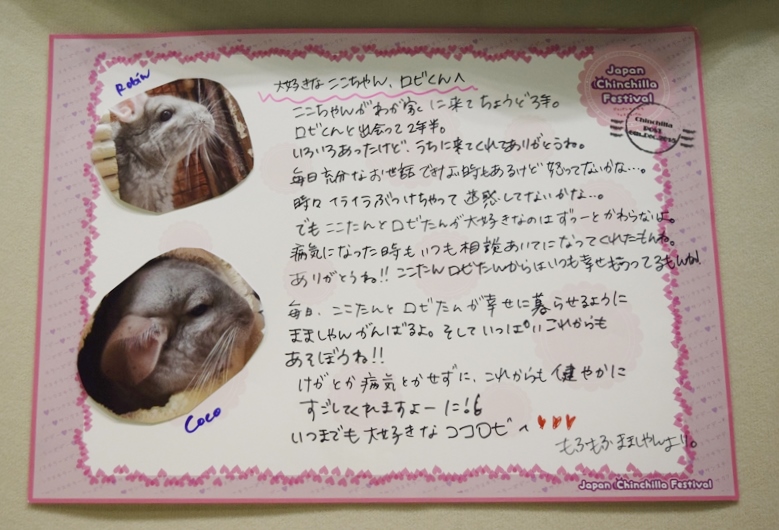 Robin
大好きなここちゃん、ロビくんへ
Japan
Chinchilla
Festival
ここちゃんがわが家に来てちょうど3年。
Chinchilla
POST
ロビくんと出会って2年半。
いろいろあったけど、うちに来てくれてありがとうね。
毎日充分なお世話できない時もあるけど怒ってないかな…。
時々イライラぶつけちゃって迷惑してないかな…。
でもここたんとロビたんが大好きなのはずっーとかわらないよ。
病気になった時もいつも相談あいてになってくれたもんね。
ありがとうね!!ここたんロビたんからはいつも幸せもらってるもんね!
毎日、ここたんとロビたんが幸せに暮らせるように
まましゃんがんばるよ。そしていっぱいこれからも
あそぼうね!!
Coco
けがとか病気とかせずに、これからも健やかに
すごしてくれますよーに!
いつまでも大好きなココロビへ
もふもふまましゃんより。
Japan Chinchilla Festival